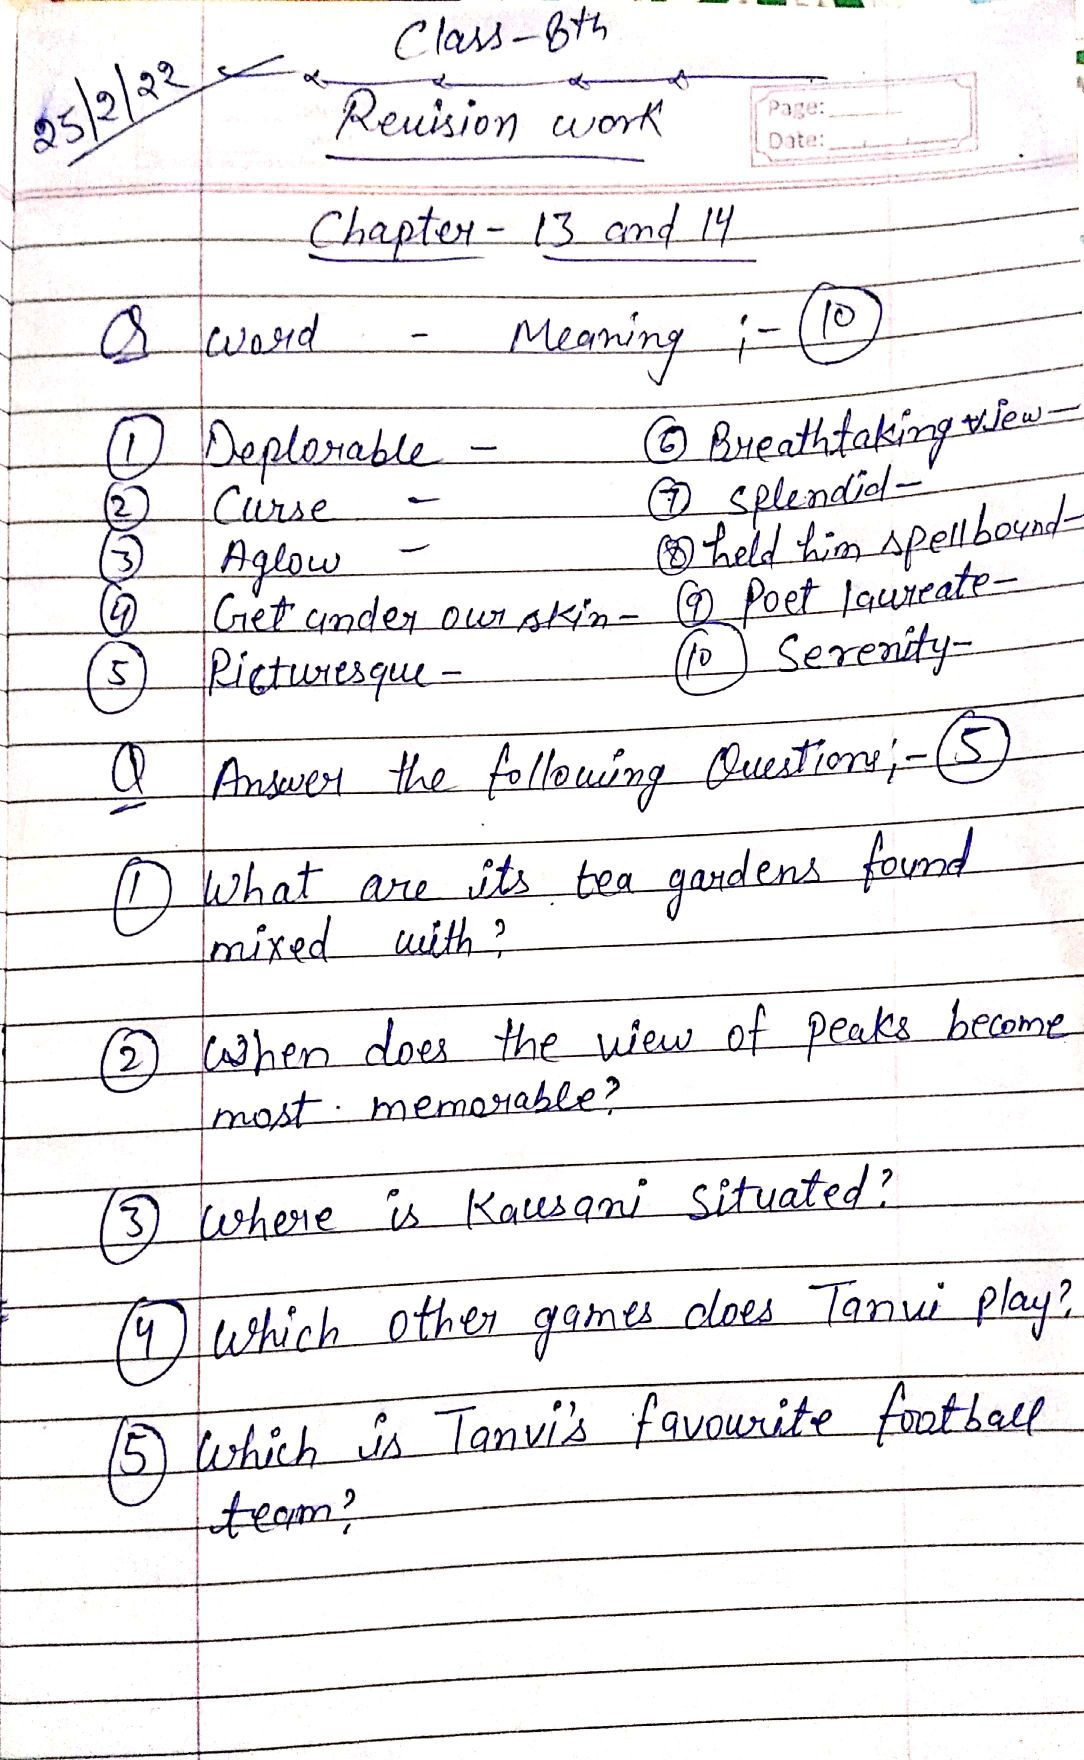 Class-8th
25/2/22
Revision work
Page:
Date:
Chapter- 13 and 14
Q word - Meaning ;- 10
1 Deplorable -
2 Curse -
3 Aglow -
4 Get under our skin-
5 Picturesque -
6 Breathtaking view-
7 splendid-
8 held him spellbound-
9 Poet laureate-
10 Serenity-
Q Answer the following Questions;- 5
1 What are its tea gardens found
mixed with?
2 When does the view of peaks become
most memorable?
3 Where is Kausani situated?
4 Which other games does Tanvi play?
5 Which is Tanvi's favourite football
team?